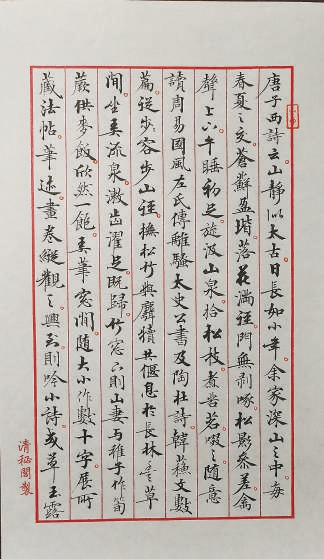 唐子西詩云山靜似太古日長如小年余家深山之中每
春夏之交蒼蘚盈堦落花滿徑門無剥啄松影參差禽
聲上下午睡初足旋汲山泉拾松枝煮苦茗啜之隨意
讀周易國風左氏傳離騷太史公書及陶杜詩韓蘇文數
篇從步容步山徑撫松竹與麛犢共偃息於長林豐草
間坐弄流泉漱齒濯足既歸竹窗下則山妻與稚子作筍
蕨供麥飯欣然一飽弄筆窗間隨大小作數十字展所
藏法帖筆迹畫卷縱觀之興到則吟小詩或草玉露
清秘閣製